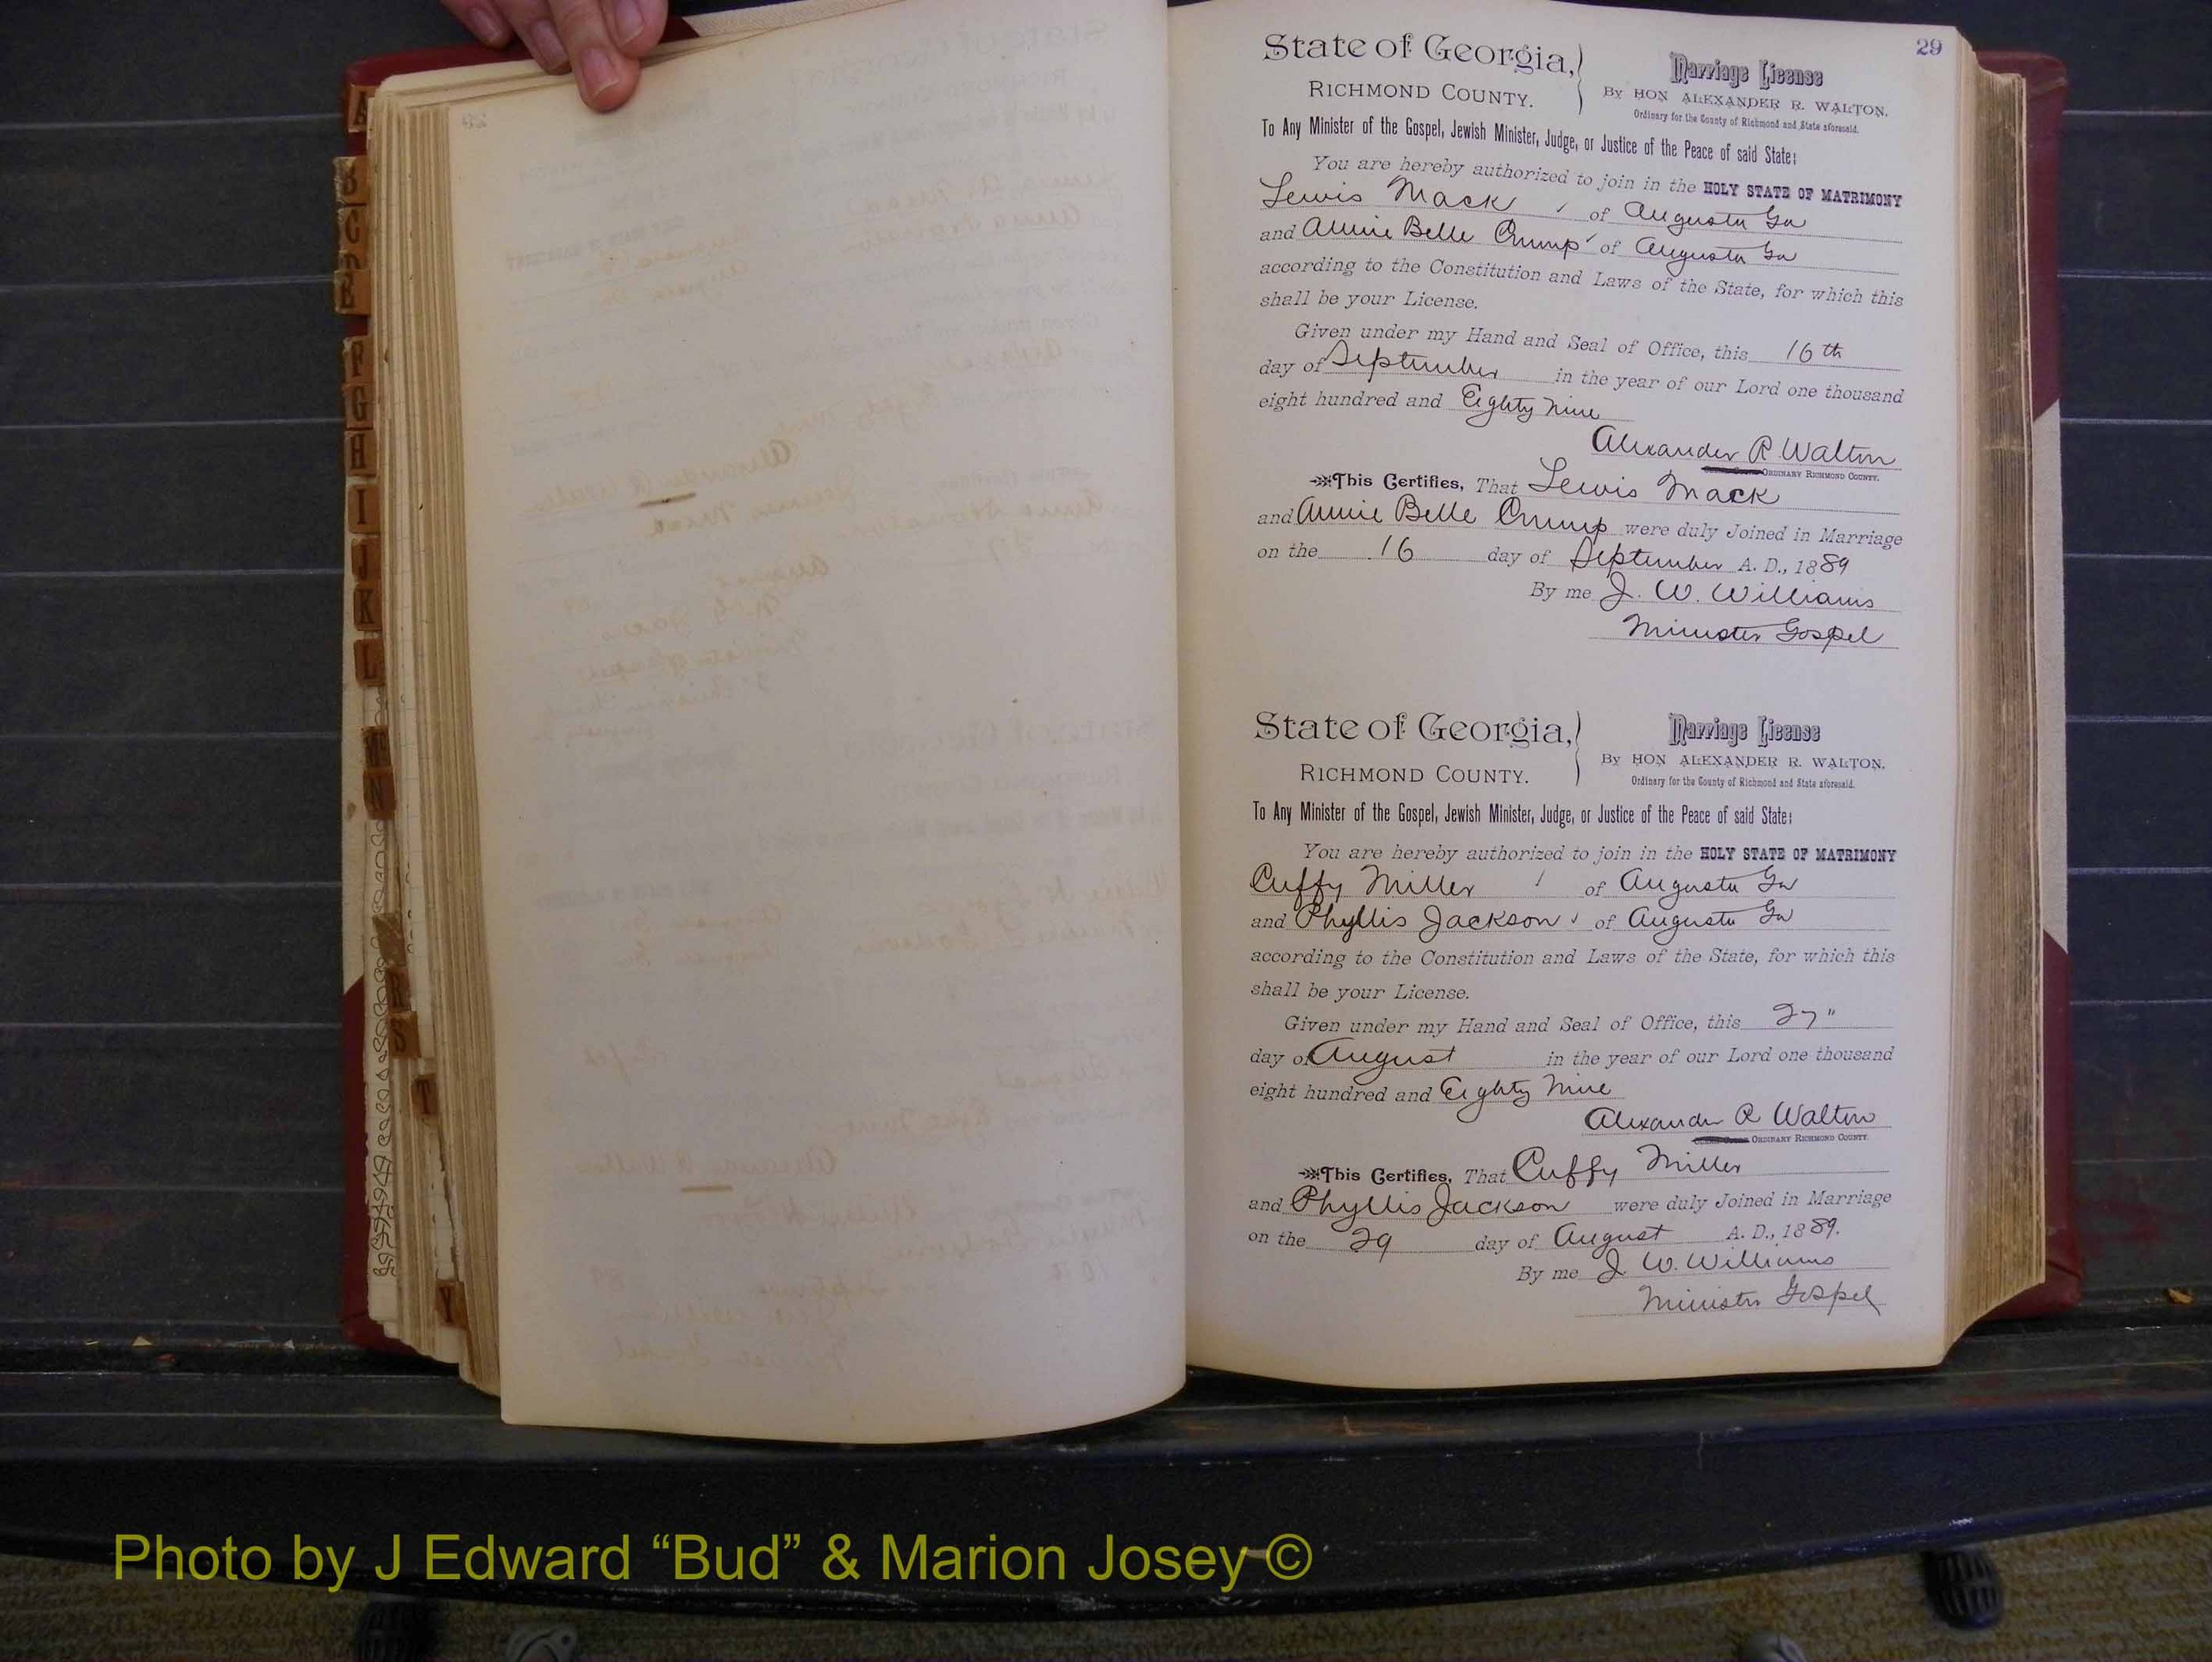 29
State of Georgia,
RICHMOND COUNTY.
Marriage License
By HON ALEXANDER R. WALTON,
Ordinary for the County of Richmond and State aforesaid.
To Any Minister of the Gospel, Jewish Minister, Judge, or Justice of the Peace of said State:
You are hereby authorized to join in the HOLY STATE OF MATRIMONY
Lewis Mack of Augusta Ga
and Annie Belle Crump of Augusta Ga
according to the Constitution and Laws of the State, for which this
shall be your License.
Given under my Hand and Seal of Office, this 16th
day of September in the year of our Lord one thousand
eight hundred and Eighty Nine
Alexander R Walton
ORDINARY RICHMOND COUNTY.
This Certifies, That Lewis Mack
and Annie Belle Crump were duly Joined in Marriage
on the 16 day of September A. D., 1889
By me J. W. Williams
Minister Gospel
State of Georgia,
RICHMOND COUNTY.
Marriage License
By HON ALEXANDER R. WALTON,
Ordinary for the County of Richmond and State aforesaid.
To Any Minister of the Gospel, Jewish Minister, Judge, or Justice of the Peace of said State:
You are hereby authorized to join in the HOLY STATE OF MATRIMONY
Cuffy Miller of Augusta Ga
and Phyllis Jackson of Augusta Ga
according to the Constitution and Laws of the State, for which this
shall be your License.
Given under my Hand and Seal of Office, this 27"
day of August in the year of our Lord one thousand
eight hundred and Eighty Nine
Alexander R Walton
ORDINARY RICHMOND COUNTY.
This Certifies, That Cuffy Miller
and Phyllis Jackson were duly Joined in Marriage
on the 29 day of August A. D., 1889.
By me J. W. Williams
Minister Gospel
A
B
C
D
E
F
G
H
I
J
K
L
M
N
R
S
T
Y
Photo by J Edward “Bud” & Marion Josey ©